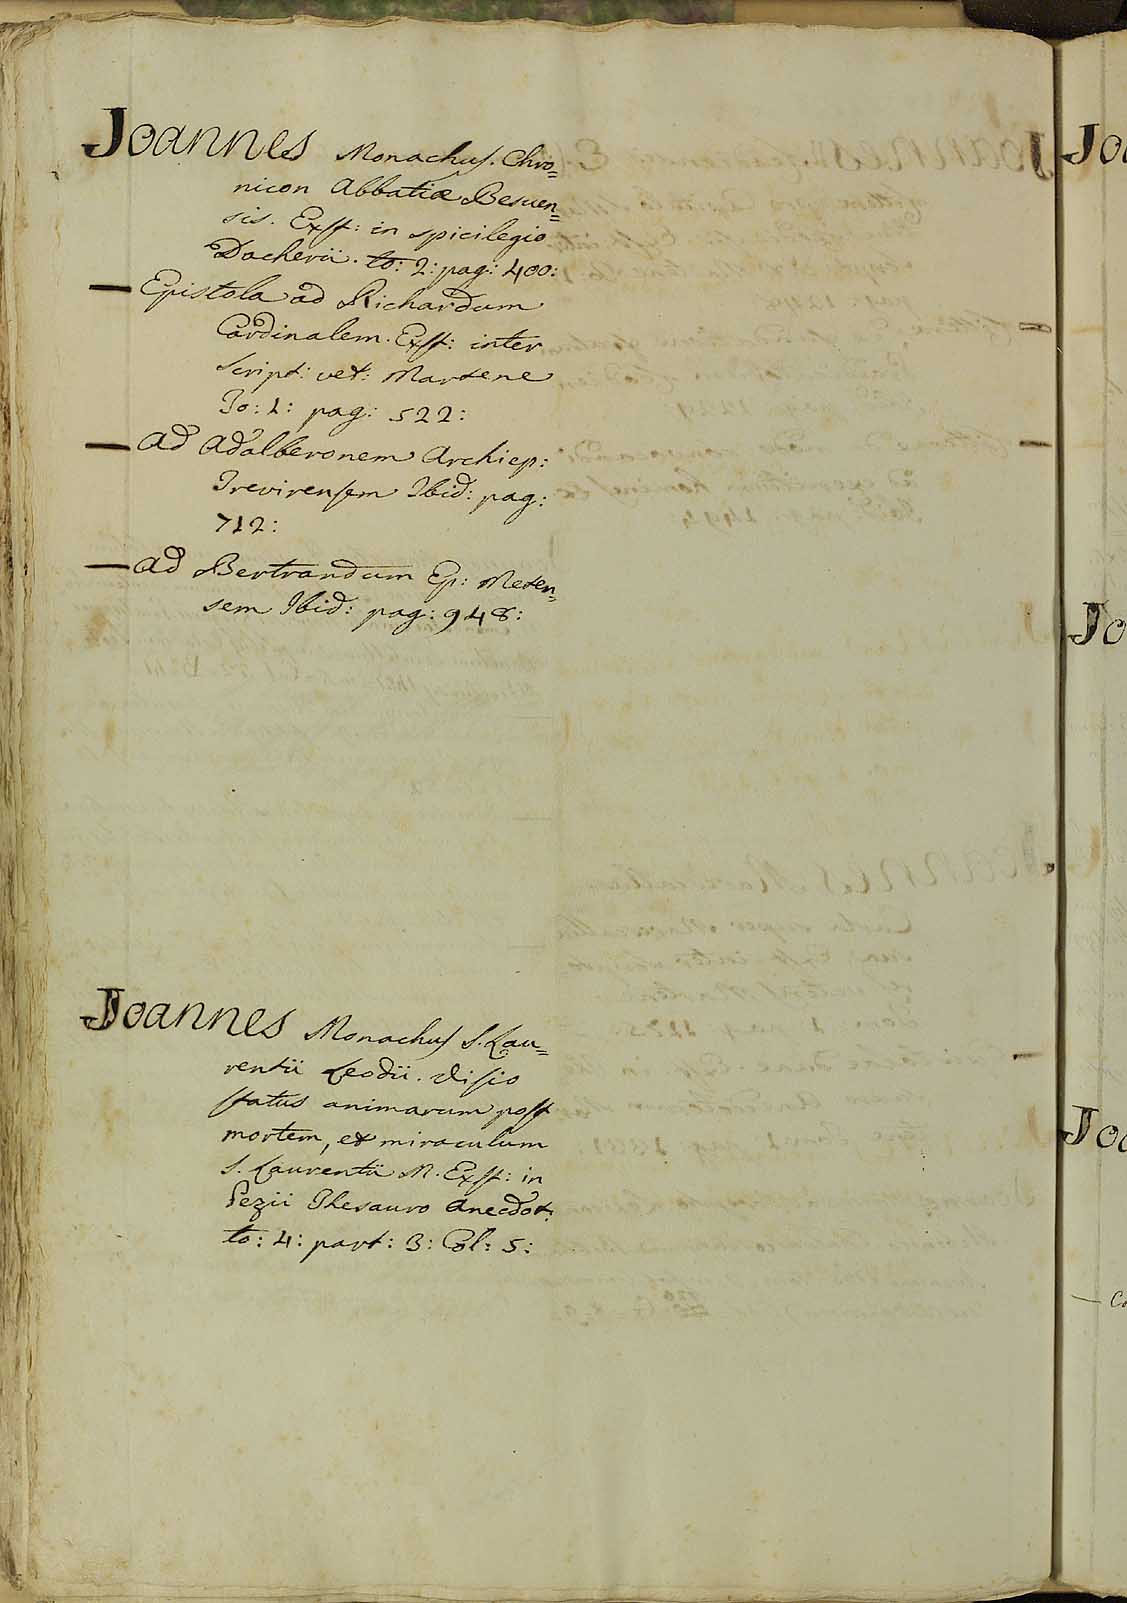 Joannes Monachus. Chro=
nicon Abbatiæ Besuen=
sis. Exst: in spicilegio
Dacherii. to: 2: pag: 400:
— Epistola ad Richardum
Cardinalem. Exst: inter
Script: vet: Martene
To: 1: pag: 522:
— Ad Adalberonem Archiep:
Trevirensem Ibid: pag:
712:
— Ad Bertrandum Ep: Meten=
sem Ibid: pag: 948:
Joannes Monachus S. Lau=
rentii Leodii. Visio
status animarum post
mortem, et miraculum
S. Laurentii M. Exst: in
Pezii Thesauro Anecdot:
to: 4: part: 3: Col: 5: